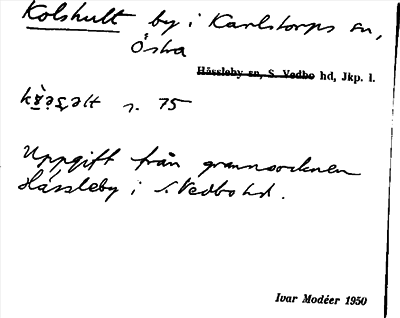 Kolshult by i Karlstorps sn,
Östra
Hässleby sn, S. Vedbo hd, Jkp. l.
s. 75
Uppgift från grannsocknen
Hässleby i S. Vedbo hd.
Ivar Modéer 1950